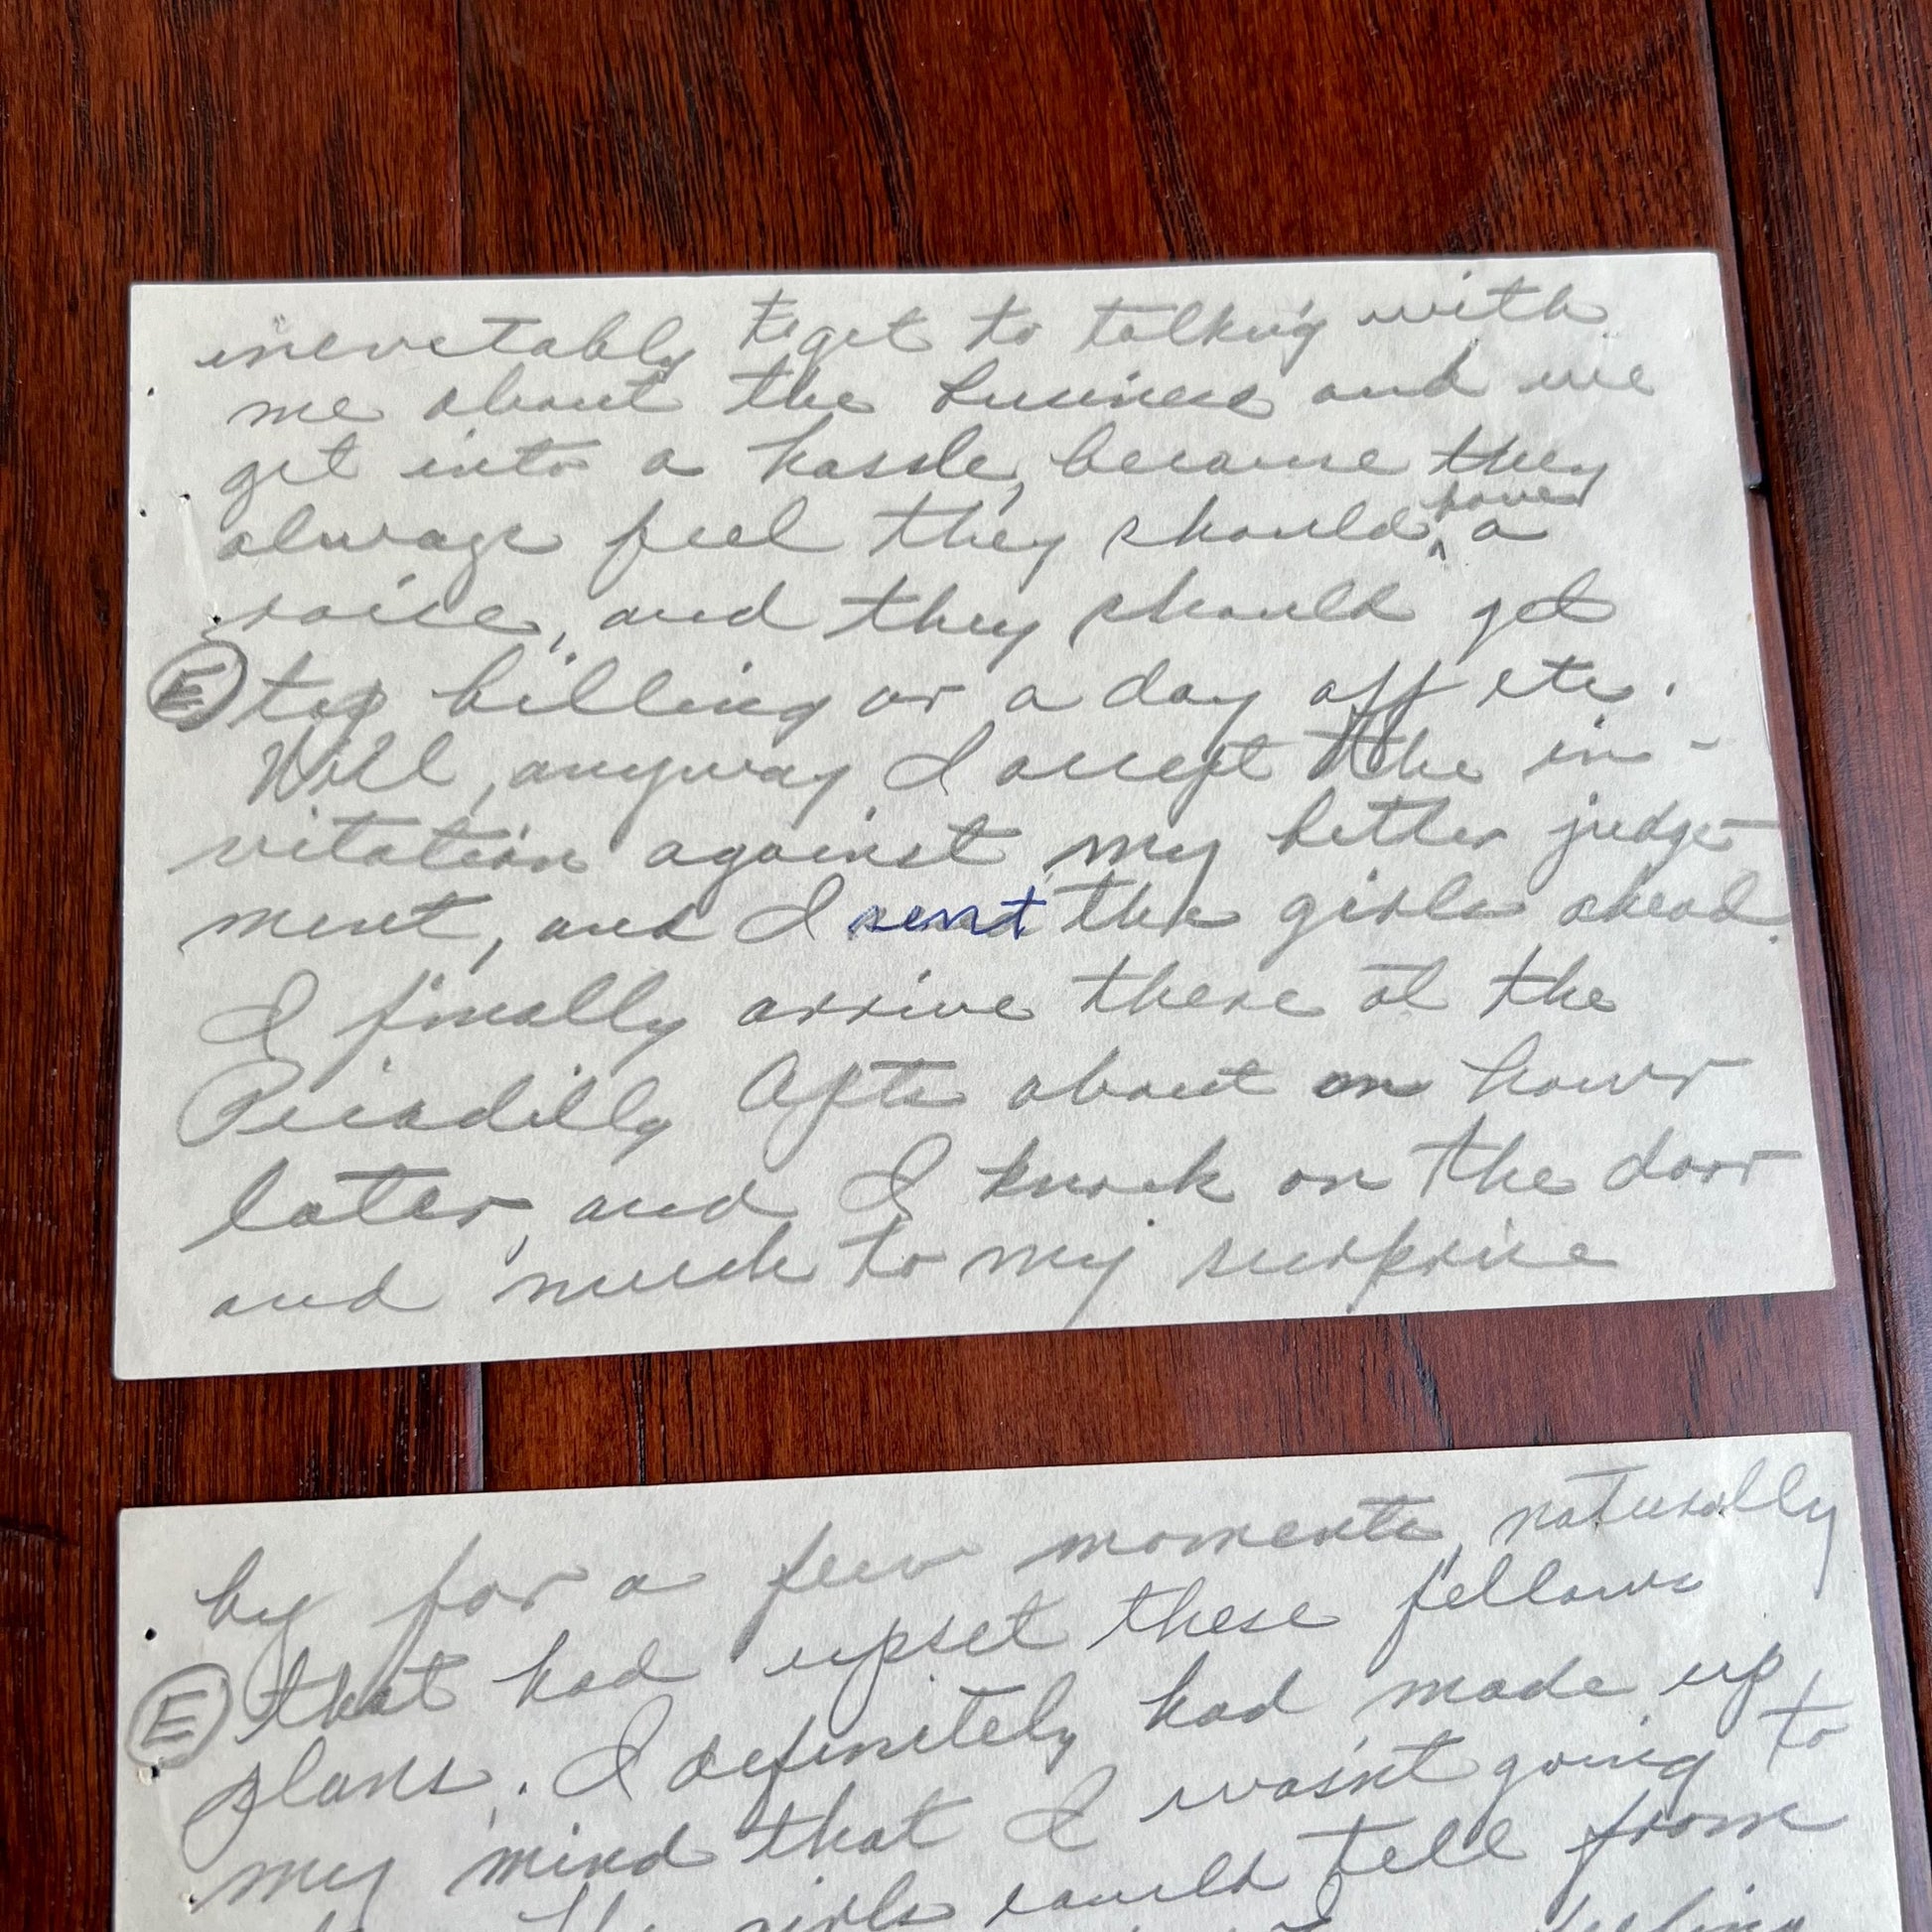 inevitably to get to talking with
me about the business and we
get into a hassle, because they
always feel they should have a
raise, and they should get
E top billing or a day off etc.
Well, anyway I accept the in-
vitation against my better judge
ment, and I sent the girls ahead.
I finally arrive there at the
Picadilly After about an hour
later, and I knock on the door
and much to my surprise
by for a few moments, naturally
E that had upset these fellows
plans. I definitely had made up
my mind that I wasn't going to
the girls could tell from